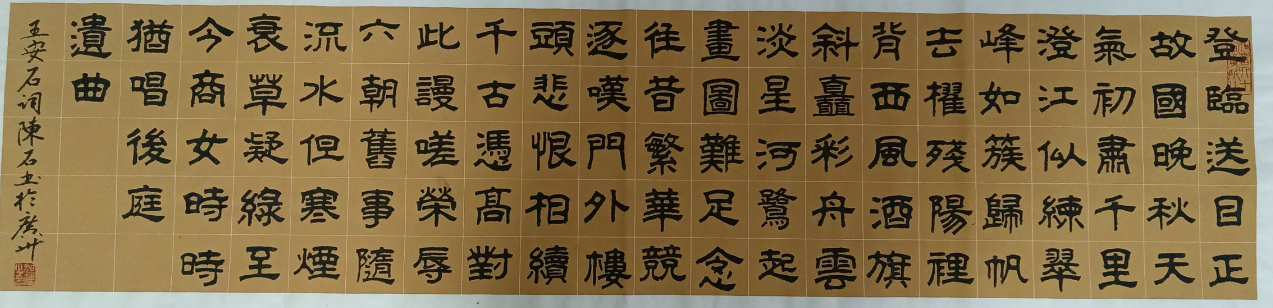 登臨送目正
故國晚秋天
氣初肅千里
澄江似練翠
峰如簇歸帆
去櫂殘陽裡
背西風酒旗
斜矗彩舟雲
淡星河鷺起
畫圖難足念
往昔繁華競
逐嘆門外樓
頭悲恨相續
千古憑髙對
此謾嗟榮辱
六朝舊事隨
流水但寒煙
衰草凝綠至
今商女時時
猶唱後庭
遺曲
王安石词陳石书於廣州